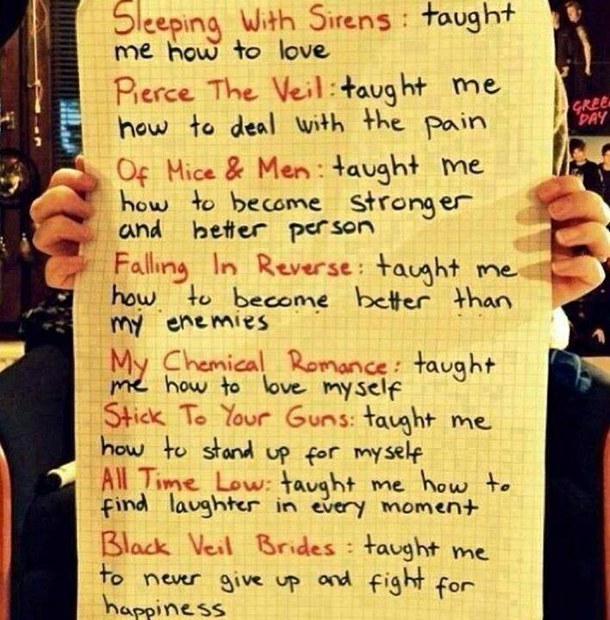 Sleeping With Sirens : taught
me how to love
Pierce The Veil : taught me
how to deal with the pain
Of Mice & Men : taught me
how to become stronger
and better person
Falling In Reverse : taught me
how to become better than
my enemies
My Chemical Romance : taught
me how to love myself
Stick To Your Guns: taught me
how to stand up for myself
All Time Low: taught me how to
find laughter in every moment
Black Veil Brides : taught me
to never give up and fight for
happiness
GREE
DAY